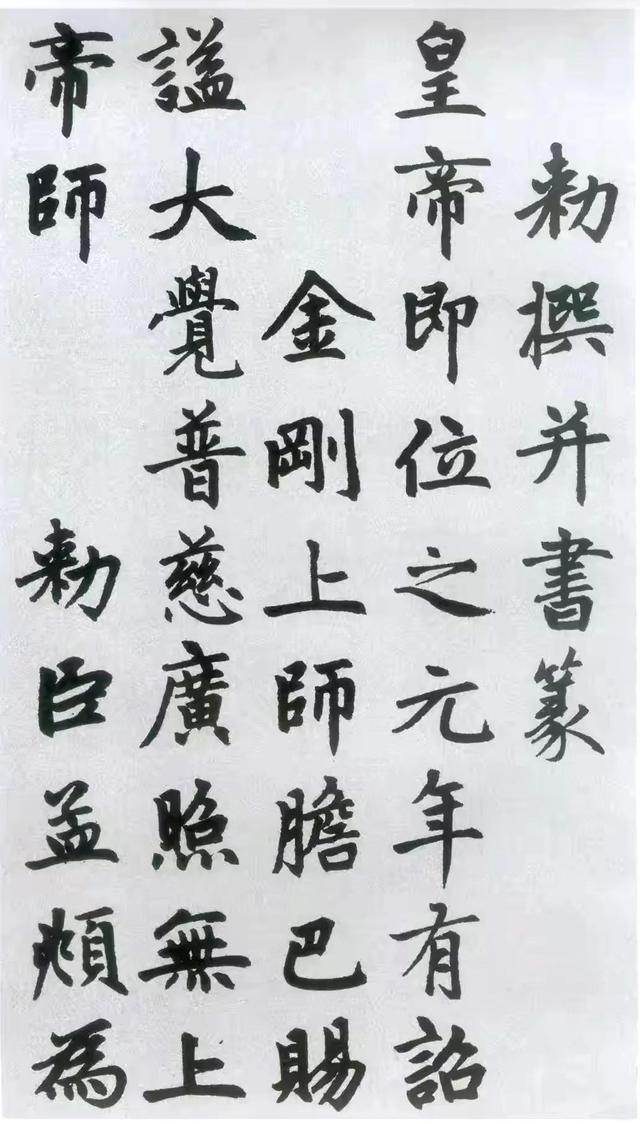 勑撰并書篆
皇帝即位之元年有詔
金剛上師膽巴賜
謚大覺普慈廣照無上
帝師 勑臣孟頫為